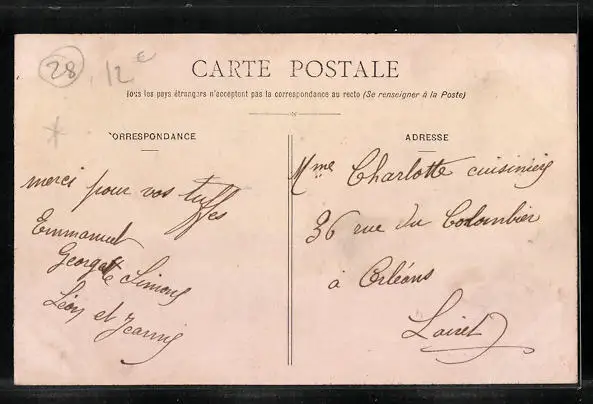 28
12 €
CARTE POSTALE
Tous les pays étrangers n'acceptent pas la correspondance au recto (Se renseigner à la Poste)
CORRESPONDANCE
merci pour vos tuffes
Emmanuel
Georgette Simons
Léon et Jeanny
ADRESSE
Mme Charlotte cuisinière
36 rue du Colombier
à Orléans
Loiret